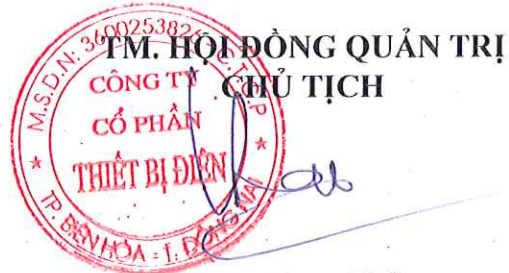 TM. HỘI ĐỒNG QUẢN TRỊ
CHỦ TỊCH
M.S.D.N: 3600253826 C.T.C.P
CÔNG TY
CỔ PHẦN
THIẾT BỊ ĐIỆN
TP. BIÊN HÒA - T. ĐỒNG NAI